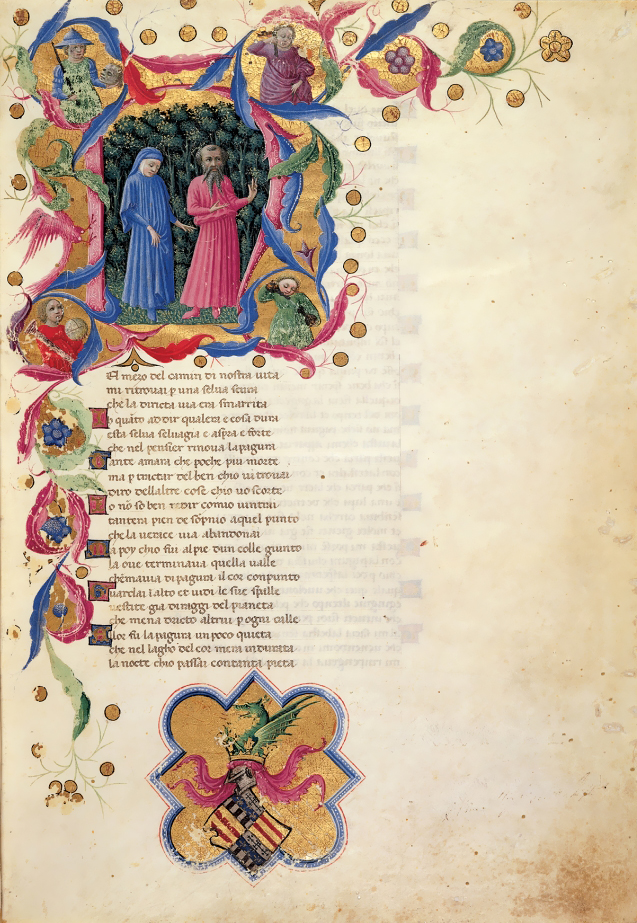 El mezo del camin di nostra uita
mi ritrouai p una selua scura
che la diricta uia era smarrita
a quãto ad dir qualera e cosa dura
esta selua seluagia e aspra e forte
che nel pensier rinoua la pagura
ante amara che poche piu morte
ma p tractar del ben chio ui trouai
diro dellaltre cose chio uo scorte
o nõ so ben redir comio uintrai
tantera pien de sopnio aquel punto
che la uerace uia abandonai
a poy chio fui al pie dun colle giunto
la oue terminaua quella ualle
che mauia di pagura il cor conpunto
uardai ĩ alto et uidi le sue spalle
uestite gia di raggi del pianeta
che mena dricto altrui p ogni calle
lor fu la pagura un poco queta
che nel lagho del cor mera indurata
la nocte chio passai con tanta pieta